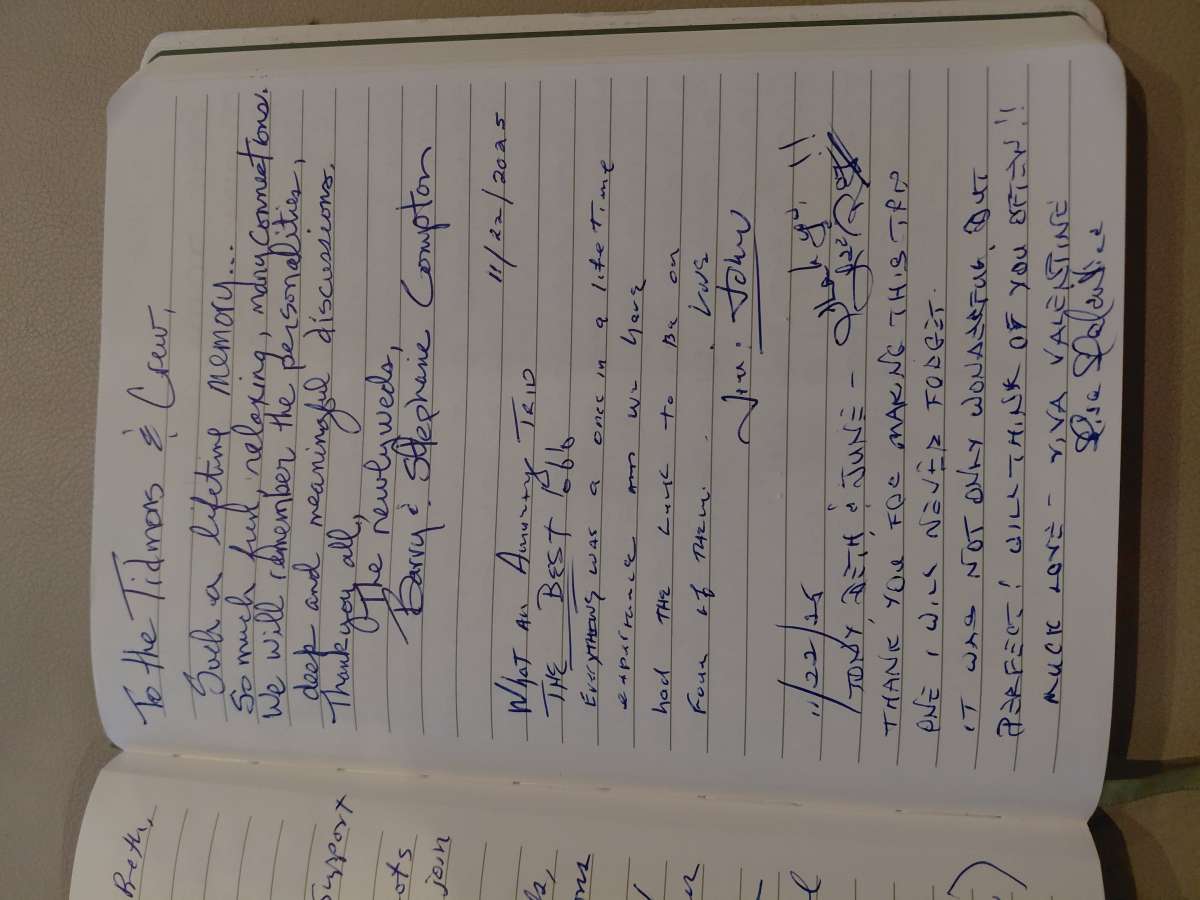 To the Tidmons & Crew,
Such a lifetime memory...
So much fun, relaxing, many connections.
We will remember the personalities,
deep and meaningful discussions.
Thank you all,
The newlyweds,
Barry & Stephanie Compton
11/22/2025
What an Amazing Trip
THE BEST
Everything was a once in a life Time
experience and we have
had the Luck to Be on
Four of Them. Love
Jim & John
11/22/25
Thank you!!
TONY, BETH & JUNE -
THANK YOU FOR MAKING THIS TRIP
ONE I WILL NEVER FORGET.
IT WAS NOT ONLY WONDERFUL BUT
PERFECT! WILL THINK OF YOU OFTEN!!
MUCH LOVE - RIVA VALENTINE
Beth,
Support
join